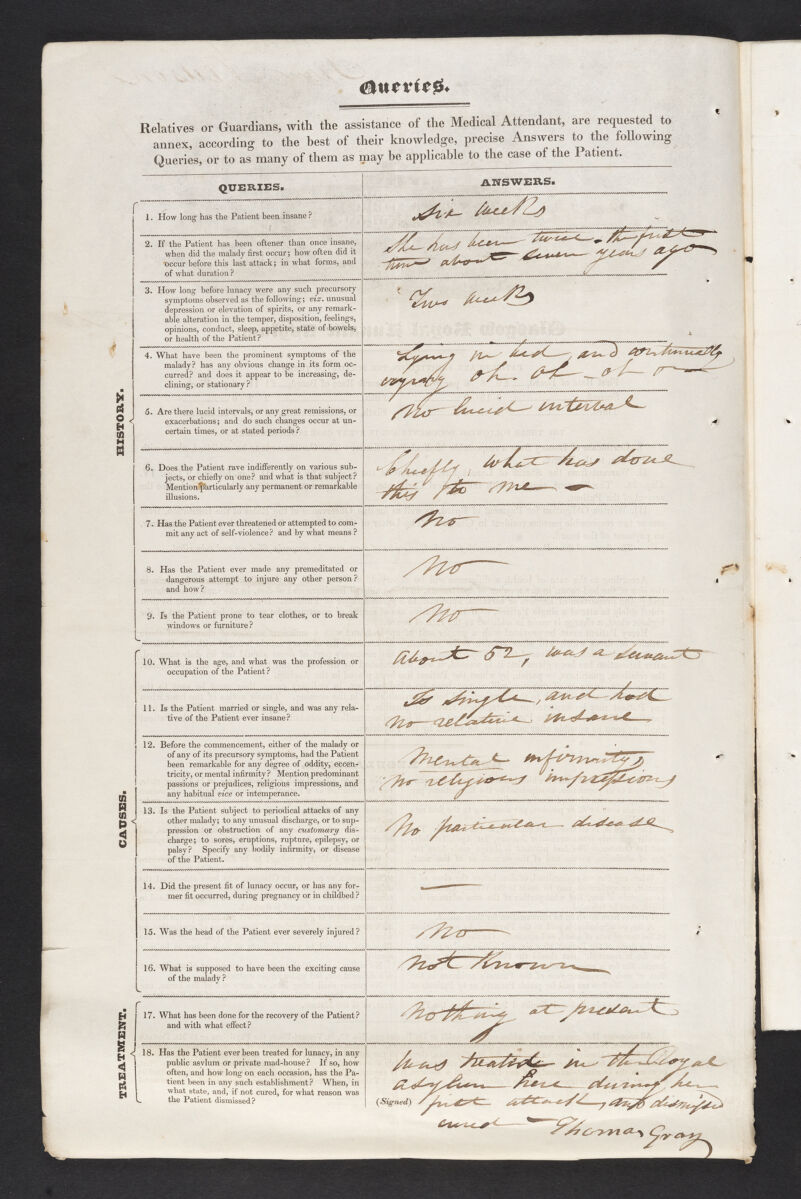 Queries.
Relatives or Guardians, with the assistance of the Medical Attendant, are requested to
annex, according to the best of their knowledge, precise Answers to the following
Queries, or to as many of them as may be applicable to the case of the Patient.
QUERIES.
ANSWERS.
HISTORY.
1. How long has the Patient been insane?
Six weeks
2. If the Patient has been oftener than once insane,
when did the malady first occur; how often did it
occur before this last attack; in what forms, and
of what duration?
She has been twice - the first
time about seven years ago
3. How long before lunacy were any such precursory
symptoms observed as the following; viz. unusual
depression or elevation of spirits, or any remark-
able alteration in the temper, disposition, feelings,
opinions, conduct, sleep, appetite, state of bowels,
or health of the Patient?
Two weeks
4. What have been the prominent symptoms of the
malady? has any obvious change in its form oc-
curred? and does it appear to be increasing, de-
clining, or stationary?
Lying in bed, and continually
crying oh - oh - oh
5. Are there lucid intervals, or any great remissions, or
exacerbations; and do such changes occur at un-
certain times, or at stated periods?
No lucid interval
6. Does the Patient rave indifferently on various sub-
jects, or chiefly on one? and what is that subject?
Mention particularly any permanent or remarkable
illusions.
Chiefly, what has done
this to me -
7. Has the Patient ever threatened or attempted to com-
mit any act of self-violence? and by what means?
No
8. Has the Patient ever made any premeditated or
dangerous attempt to injure any other person?
and how?
No
9. Is the Patient prone to tear clothes, or to break
windows or furniture?
No
CAUSES.
10. What is the age, and what was the profession or
occupation of the Patient?
About 52, was a servant
11. Is the Patient married or single, and was any rela-
tive of the Patient ever insane?
Is single, and had
no relative insane
12. Before the commencement, either of the malady or
of any of its precursory symptoms, had the Patient
been remarkable for any degree of oddity, eccen-
tricity, or mental infirmity? Mention predominant
passions or prejudices, religious impressions, and
any habitual vice or intemperance.
Mental infirmity,
no religious impressions
13. Is the Patient subject to periodical attacks of any
other malady; to any unusual discharge, or to sup-
pression or obstruction of any customary dis-
charge; to sores, eruptions, rupture, epilepsy, or
palsy? Specify any bodily infirmity, or disease
of the Patient.
No particular disease
14. Did the present fit of lunacy occur, or has any for-
mer fit occurred, during pregnancy or in childbed?
—
15. Was the head of the Patient ever severely injured?
No
16. What is supposed to have been the exciting cause
of the malady?
Not Known
TREATMENT.
17. What has been done for the recovery of the Patient?
and with what effect?
Nothing at present
18. Has the Patient ever been treated for lunacy, in any
public asylum or private mad-house? If so, how
often, and how long on each occasion, has the Pa-
tient been in any such establishment? When, in
what state, and, if not cured, for what reason was
the Patient dismissed?
Was treated in the Royal
Asylum here during her
(Signed) first attack, and dismissed
cured - Thomas Gray